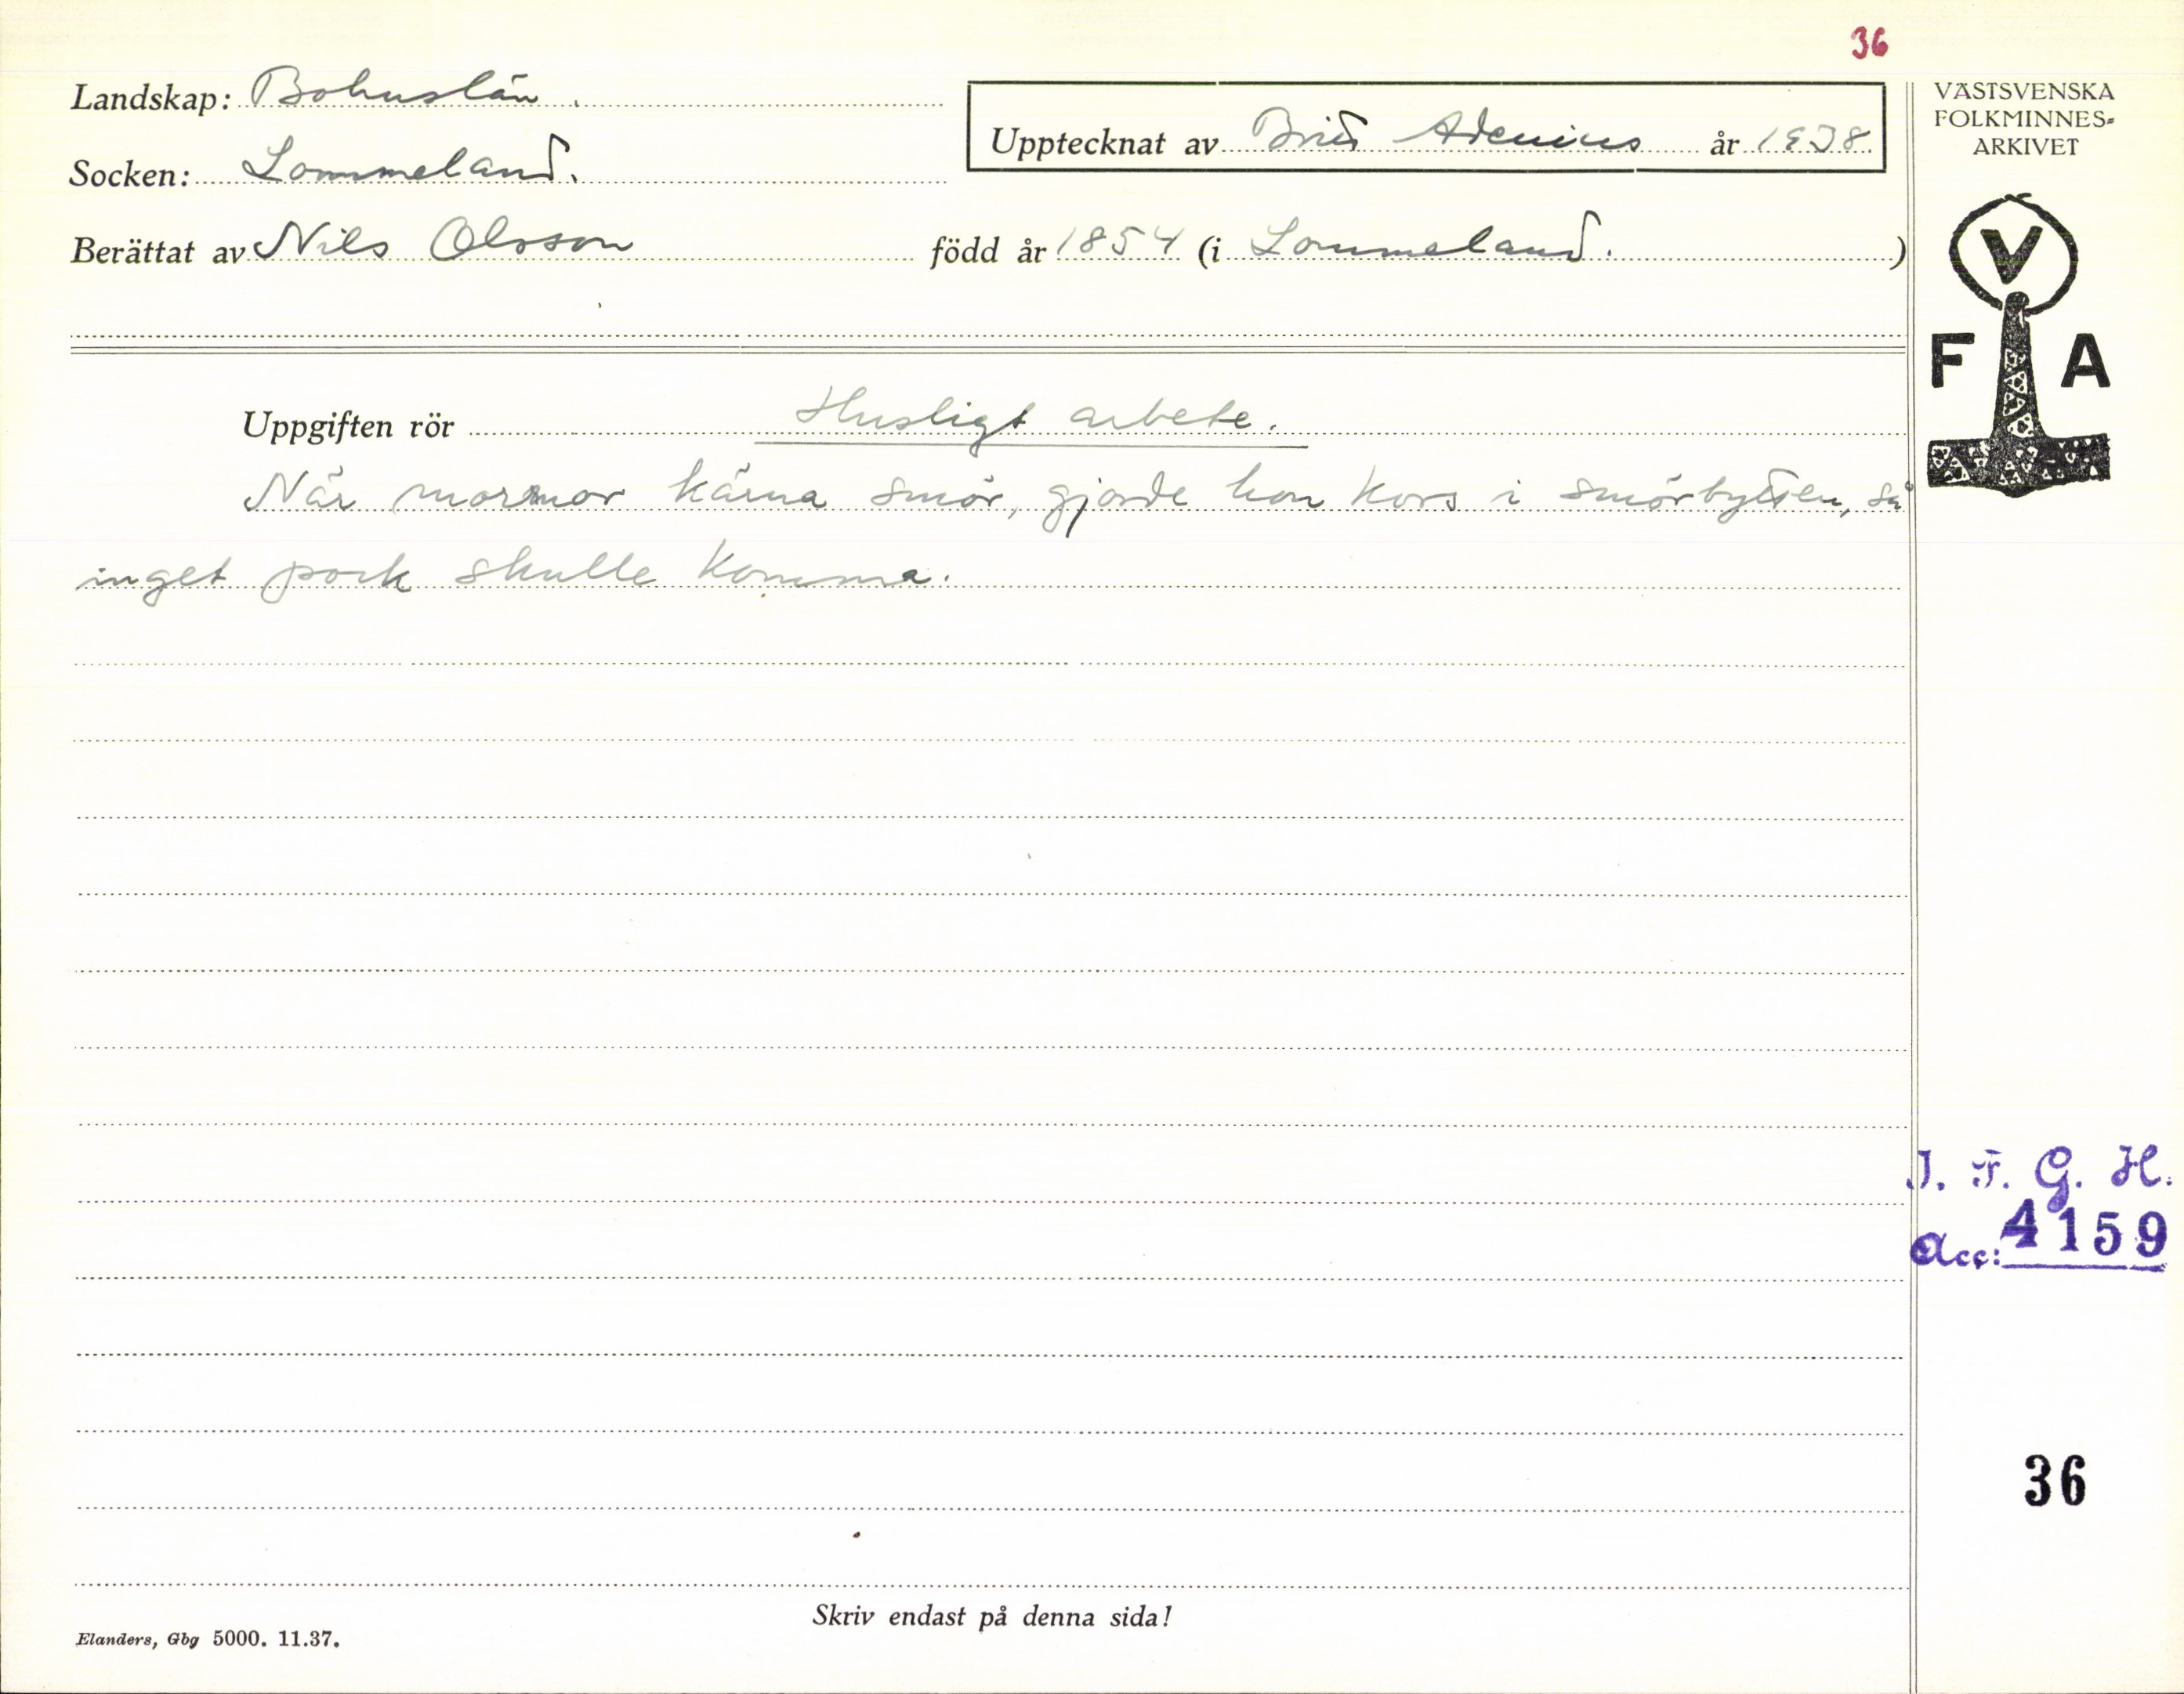 36
Landskap: Bohuslän.
Upptecknat av Brita Adenius år 1938
Socken: Lommeland.
Berättat av Nils Olsson född år 1854 (i Lommeland.)
VÄSTSVENSKA
FOLKMINNES-
ARKIVET
V
F A
Uppgiften rör Husligt arbete.
När mormor kärna smör, gjorde hon kors i smörbytten, så
inget pock skulle komma.
J. F. G. H.
Acc: 4159
36
Skriv endast på denna sida!
Elanders, Gbg 5000. 11.37.